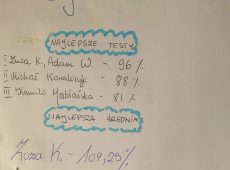 NAJLEPSZE TESTY
I Zuza K, Adam W. - 96 %
II Michał - 88 %
III Kamila Jabłońska - 81 %
NAJLEPSZA ŚREDNIA
Zuza K. - 109,25 %